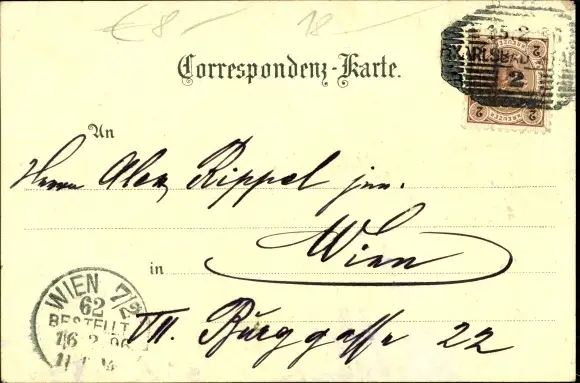 € 8 –
18 –
15.2.96
KARLSBAD
2
2
KREUZER
2
Correspondenz-Karte.
An
Herrn Alex Rippel jun.
Wien
in
VII. Burggasse 22
WIEN 7/2
62
BESTELLT
16 2 96